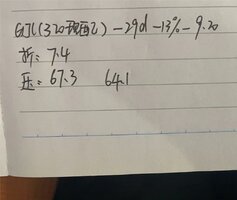 (320-现配2) -29d -13% -9.20
折: 7.4
压: 67.3 64.1